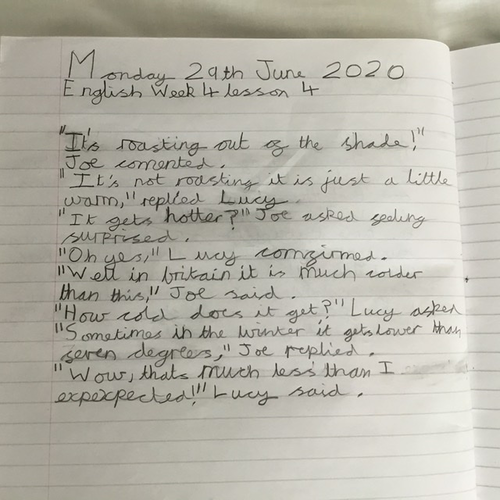 Monday 29th June 2020
English Week 4 lesson 4
"It's roasting out of the shade!"
Joe comented.
"It's not roasting it is just a little
warm," replied Lucy.
"It gets hotter?" Joe asked feeling
surprised.
"Oh yes," Lucy comfirmed.
"Well in britain it is much colder
than this," Joe said.
"How cold does it get?" Lucy asked
"Sometimes in the winter it gets lower than
seven degrees," Joe replied.
"Wow, thats much less than I
expexpected!" Lucy said.